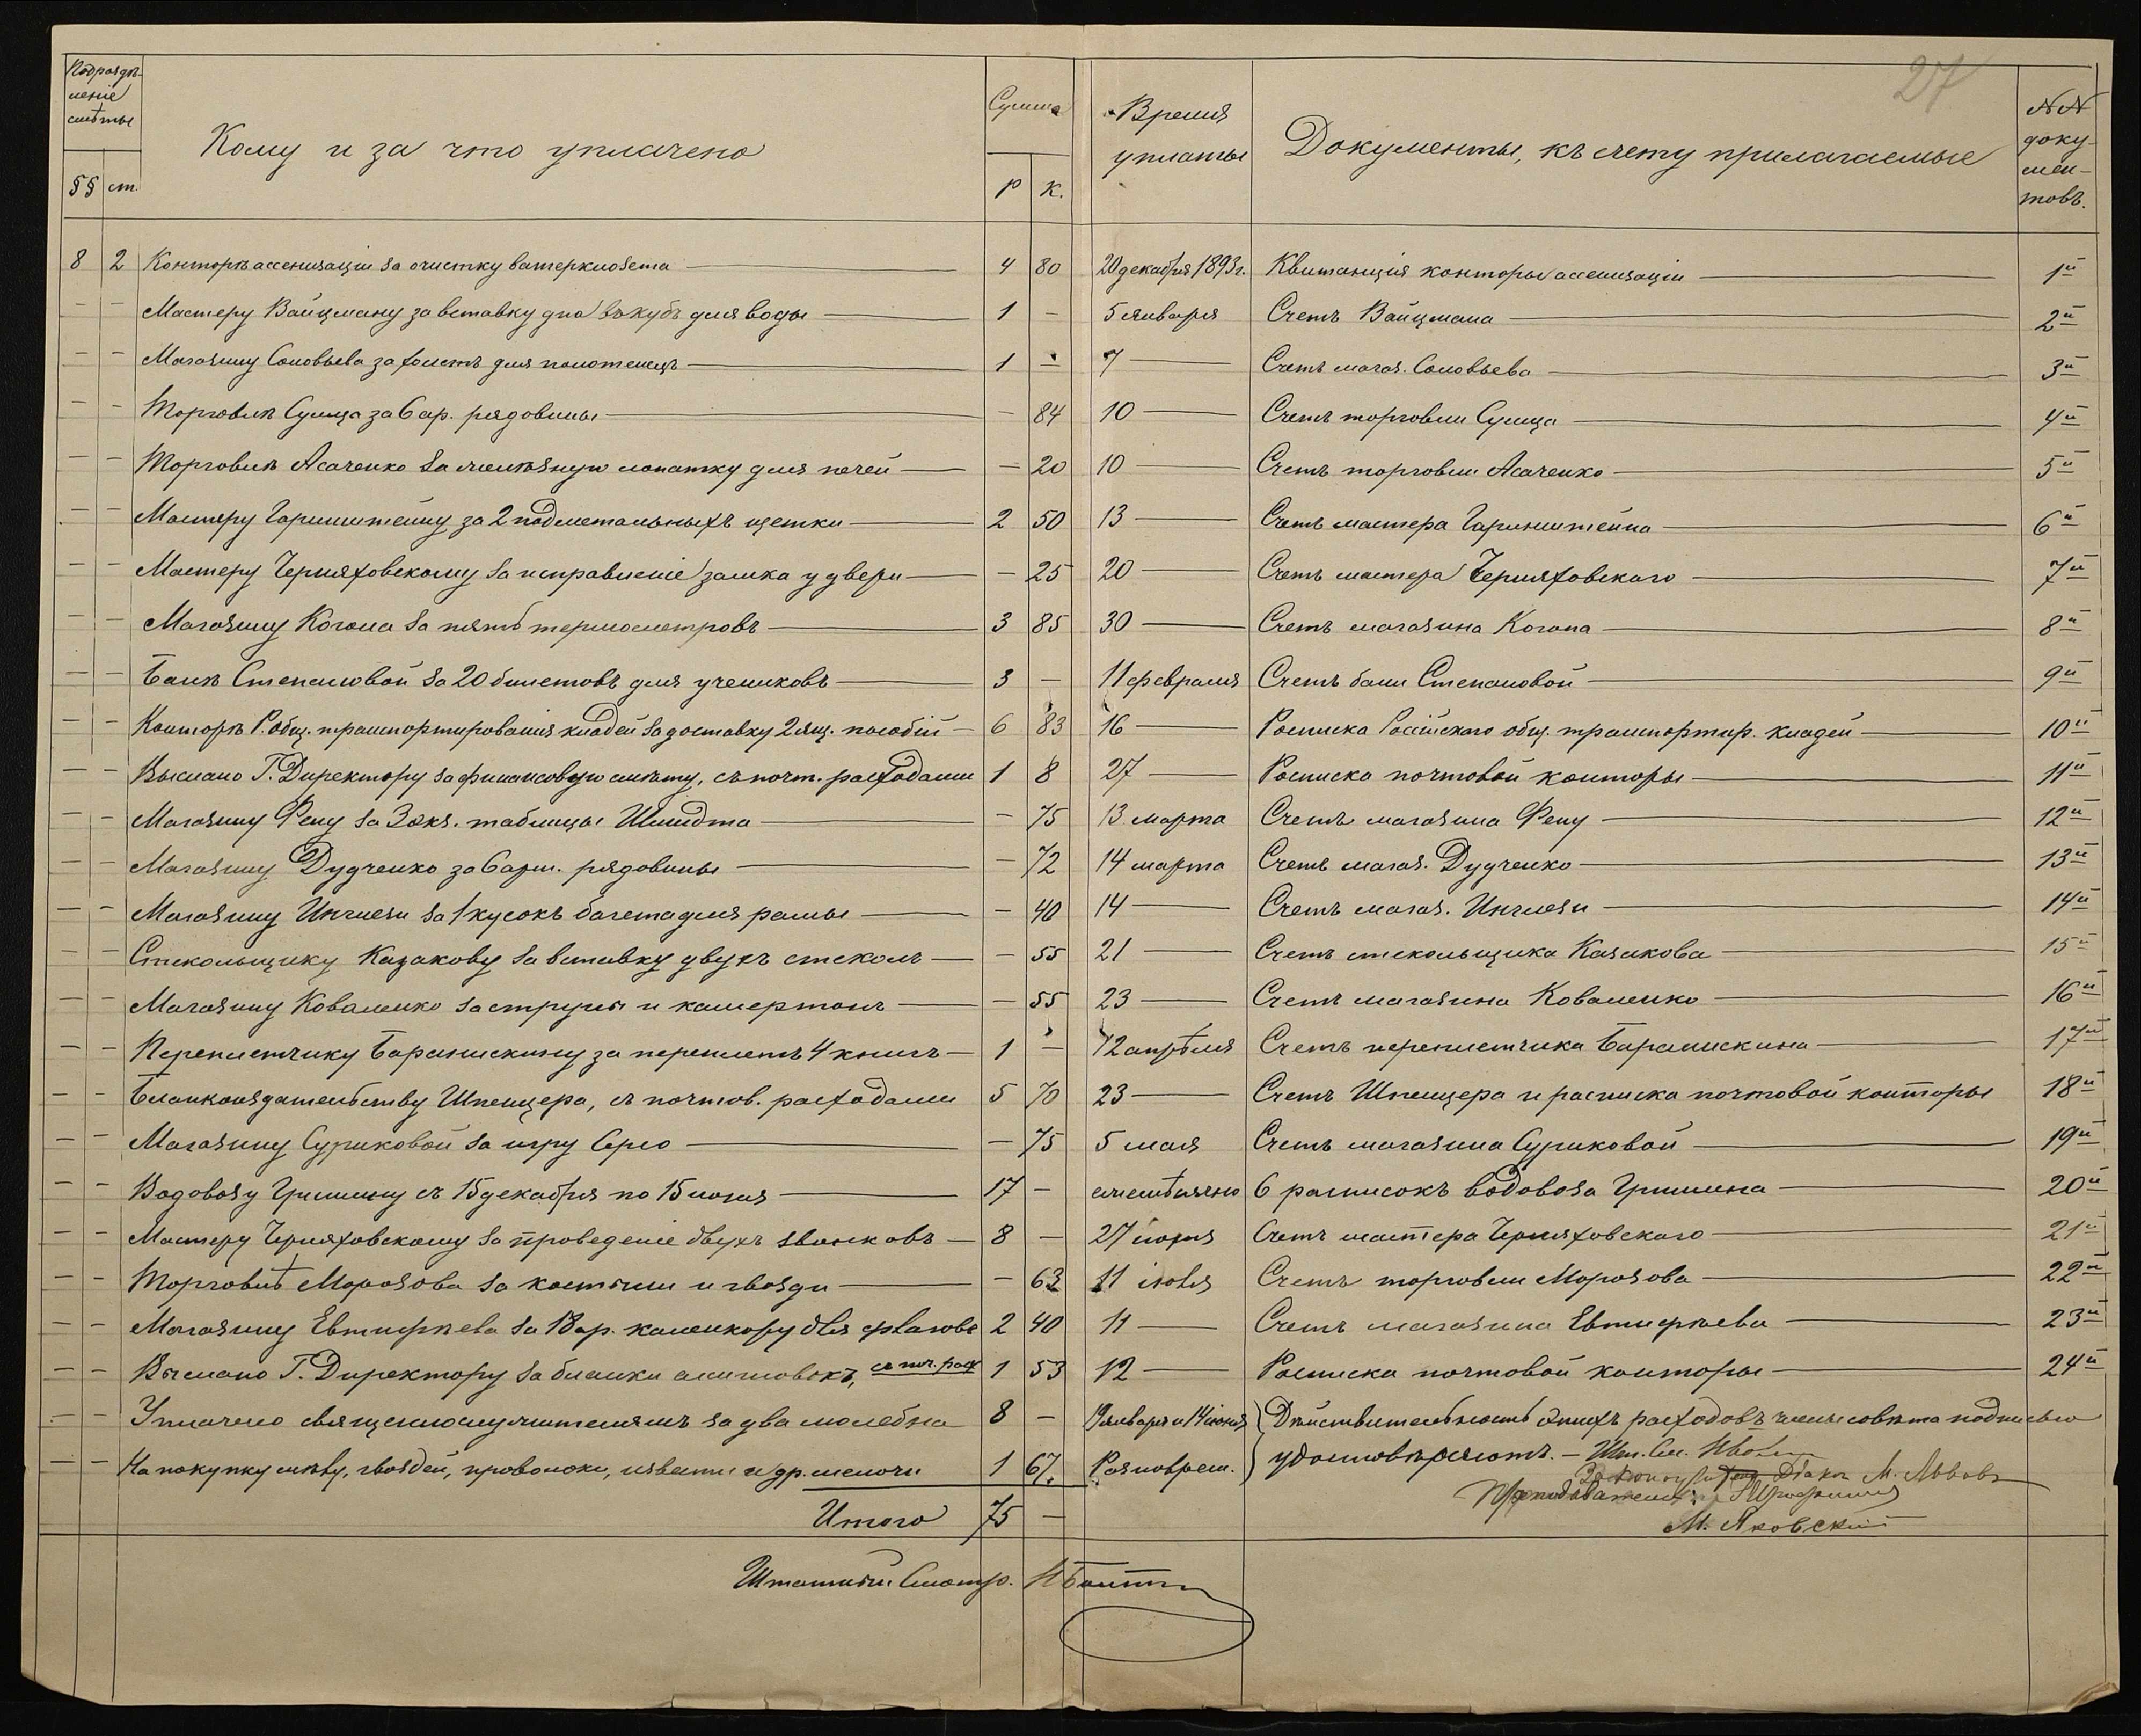 27
Подраздѣ-
леніе
смѣты
Кому и за что уплачено
Сумма
Время
уплаты
Документы, къ счету прилагаемые
№№
доку-
мен-
товъ.
§§ ст. Р К.
8 2 Конторѣ ассенизаціи за очистку ватерклозета 4 80 20 декабря 1893 г. Квитанція конторы ассенизаціи 1й
— — Мастеру Вайцману за вставку дна въ кубъ для воды 1 — 5 января Счетъ Вайцмана 2й
— — Магазину Соловьева за холстъ для полотенецъ 1 — 7 — Счетъ магаз. Соловьева 3й
— — Торговлѣ Сумца за 6 ар. рядовины — 84 10 — Счетъ торговли Сумца 4й
— — Торговлѣ Асаченко за желѣзную лопатку для печей — 20 10 — Счетъ торговли Асаченко 5й
— — Мастеру Горинштейну за 2 подметальныхъ щетки 2 50 13 — Счетъ мастера Горинштейна 6й
— — Мастеру Черняховскому за исправленіе замка у двери — 25 20 — Счетъ мастера Черняховскаго 7й
— — Магазину Когана за пять термометровъ 3 85 30 — Счетъ магазина Когана 8й
— — Банѣ Степановой за 20 билетовъ для учениковъ 3 — 11 февраля Счетъ бани Степановой 9й
— — Конторѣ Р. общ. транспортированія кладей за доставку 2 ящ. пособій — 6 83 16 — Росписка Россійскаго общ. транспортир. кладей 10й
— — Выслано Г. Директору за финансовую смѣту, съ почт. расходами 1 8 27 — Росписка почтовой конторы 11й
— — Магазину Фену за 3 экз. таблицы Шмидта — 75 13 марта Счетъ магазина Фену 12й
— — Магазину Дудченко за 6 арш. рядовины — 72 14 марта Счетъ магаз. Дудченко 13й
— — Магазину Инглези за 1 кусокъ багета для рамы — 40 14 — Счетъ магаз. Инглези 14й
— — Стекольщику Казакову за вставку двухъ стеколъ — — 55 21 — Счетъ стекольщика Казакова 15й
— — Магазину Коваленко за струны и камертонъ — 55 23 — Счетъ магазина Коваленко 16й
— — Переплетчику Баранискину за переплетъ 4 книгъ — 1 — 12 апрѣля Счетъ переплетчика Баранискина 17й
— — Бланкоиздательству Шпенцера, съ почтов. расходами 5 70 23 — Счетъ Шпенцера и росписка почтовой конторы 18й
— — Магазину Суриковой за игру Серсо — 75 5 мая Счетъ магазина Суриковой 19й
— — Водовозу Гришину съ 15 декабря по 15 іюня 17 — ежемѣсячно 6 расписокъ водовоза Гришина 20й
— — Мастеру Черняховскому за проведеніе двухъ звонковъ — 8 — 27 іюня Счетъ мастера Черняховскаго 21й
— — Торговлѣ Морозова за костыли и гвозди — 63 11 іюля Счетъ торговли Морозова 22й
— — Магазину Евтифѣева за 18 ар. каленкору для флаговъ 2 40 11 — Счетъ магазина Евтифѣева 23й
— — Выслано Г. Директору за бланки ассигновокъ, съ поч. расх 1 53 12 — Росписка почтовой конторы 24й
— — Уплачено священнослужителямъ за два молебна 8 — 9 января и 14 іюня Дѣйствительность этихъ расходовъ члены совѣта подписью
— — На покупку мѣлу, гвоздей, проволоки, извести и др. мелочи 1 67. Разноврем. удостовѣряютъ. — Шт. См.
М. Львовъ
Преподаватели:
Итого 75 —
М. Яковскій
Штатный Смотр.